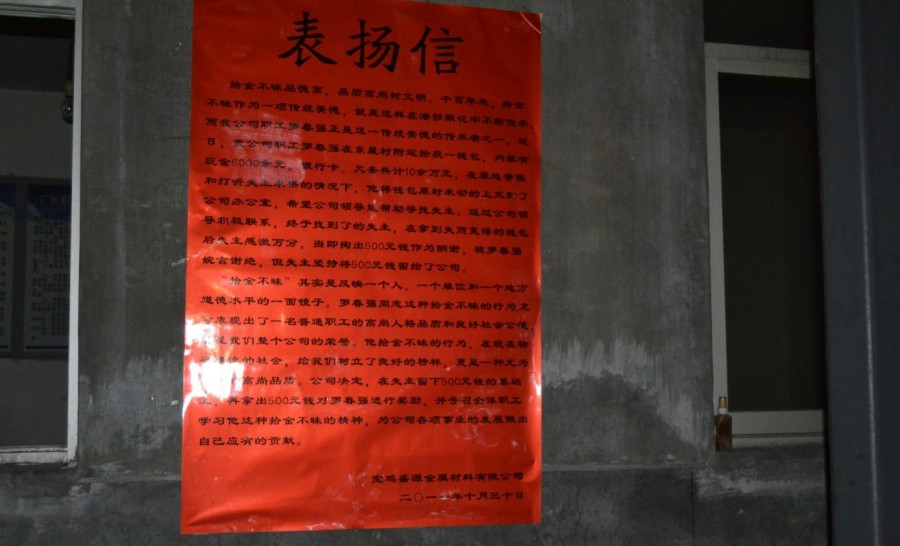 表扬信
拾金不昧品德高，品质高尚树文明，千百年来，拾金
不昧作为一项传统美德，就是这样在潜移默化中不断传承，
而我公司职工罗春强正是这一传统美德的传承者之一。近
日，我公司职工罗春强在东星村附近拾获一钱包，内装有
现金6000余元，银行卡、欠条共计10余万元，在原地等候
和打听失主未果的情况下，他将钱包原封未动的上交到了
公司办公室，希望公司领导能帮助寻找失主。通过公司领
导积极联系，终于找到了的失主，在拿到失而复得的钱包
后失主感激万分，当即掏出500元钱作为酬谢，被罗春强
婉言谢绝，但失主坚持将500元钱留给了公司。
“拾金不昧”其实是反映一个人、一个单位和一个地方
道德水平的一面镜子。罗春强同志这种拾金不昧的行为充
分表现出了一名普通职工的高尚人格品质和良好社会公德，
是我们整个公司的荣誉。他拾金不昧的行为，在现在物
的社会，给我们树立了良好的榜样，更是一种尤为
高尚品质。公司决定，在失主留下500元钱的基础
上，再拿出500元钱对罗春强进行奖励，并号召全体职工
学习他这种拾金不昧的精神，为公司各项事业的发展做出
自己应有的贡献。
宝鸡盛源金属材料有限公司
二〇一 年十月三十日